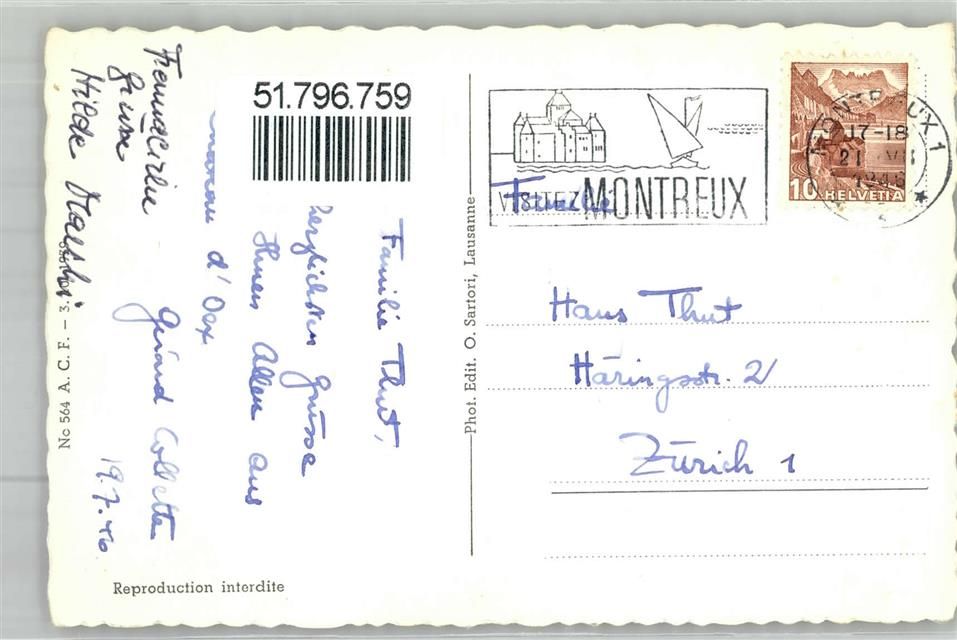 51.796.759
Familie Thut,
herzlichsten Grüsse
Ihnen Allen aus
d'Oex
Gérard Collette
19.7.46
Freundliche
Grüsse
Hilde
No 564 A. C. F. – 3.
Reproduction interdite
Phot. Edit. O. Sartori, Lausanne
VISITEZ MONTREUX
MONTREUX 1
17-18
21
10 HELVETIA
Familie
Hans Thut
Häringstr. 2
Zürich 1